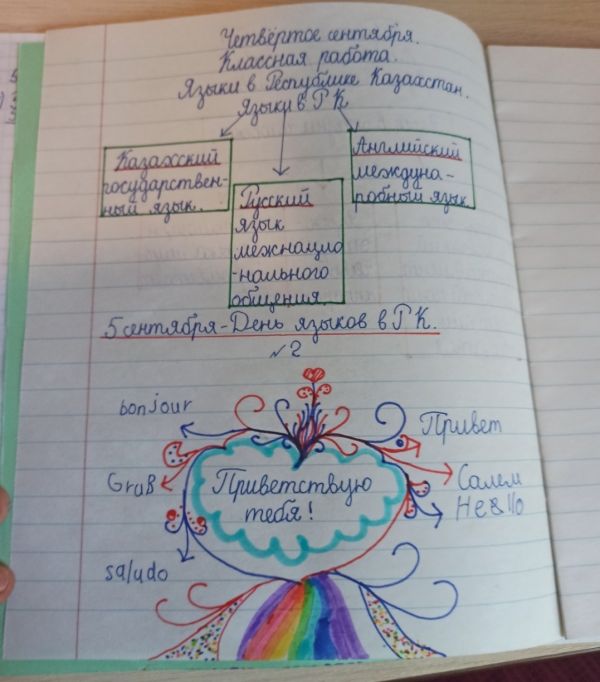 Четвёртое сентября.
Классная работа.
Языки в Республике Казахстан.
Языки в РК
Казахский
государствен-
ный язык.
Русский
язык
межнацио
-нального
общения.
Английский
междуна-
робный язык
5 сентября-День языков в РК.
№2
bonjour
Gruß
saludo
Приветствую
тебя!
Привет
Салем
Hello